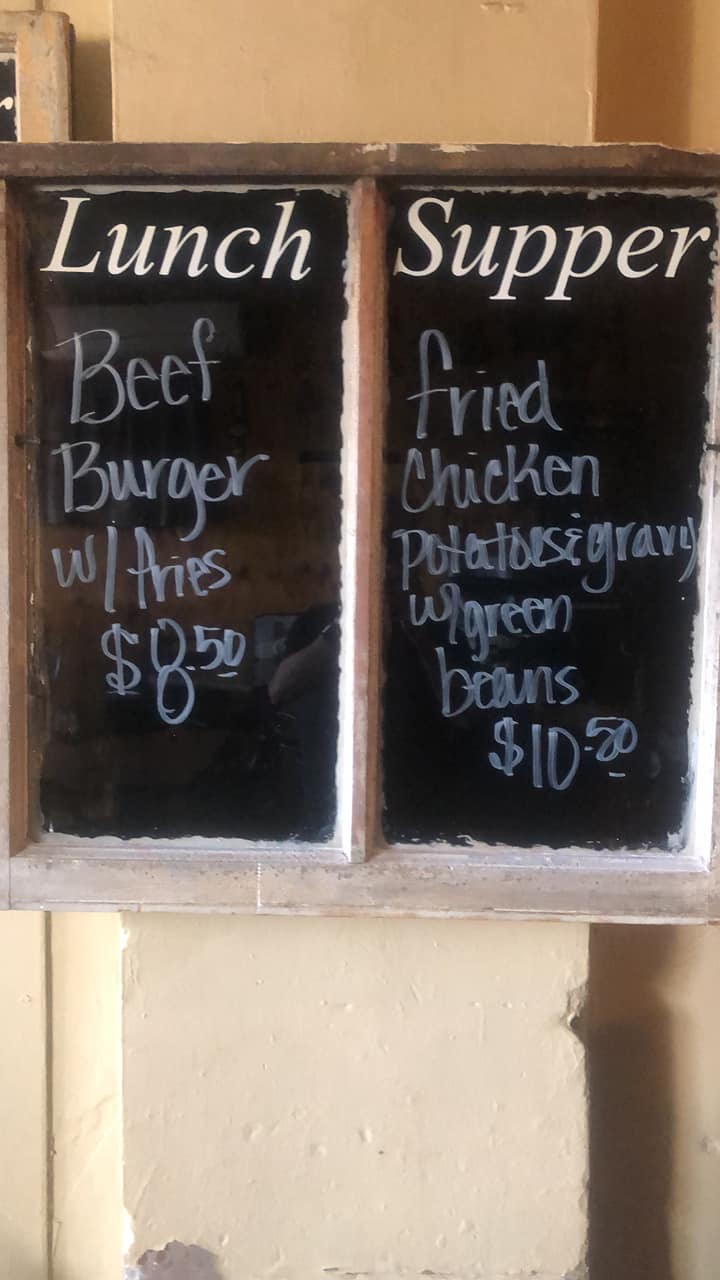 Lunch
Beef
Burger
w/ fries
$8.50
Supper
fried
Chicken
Potatoes & gravy
w/green
beans
$10.50